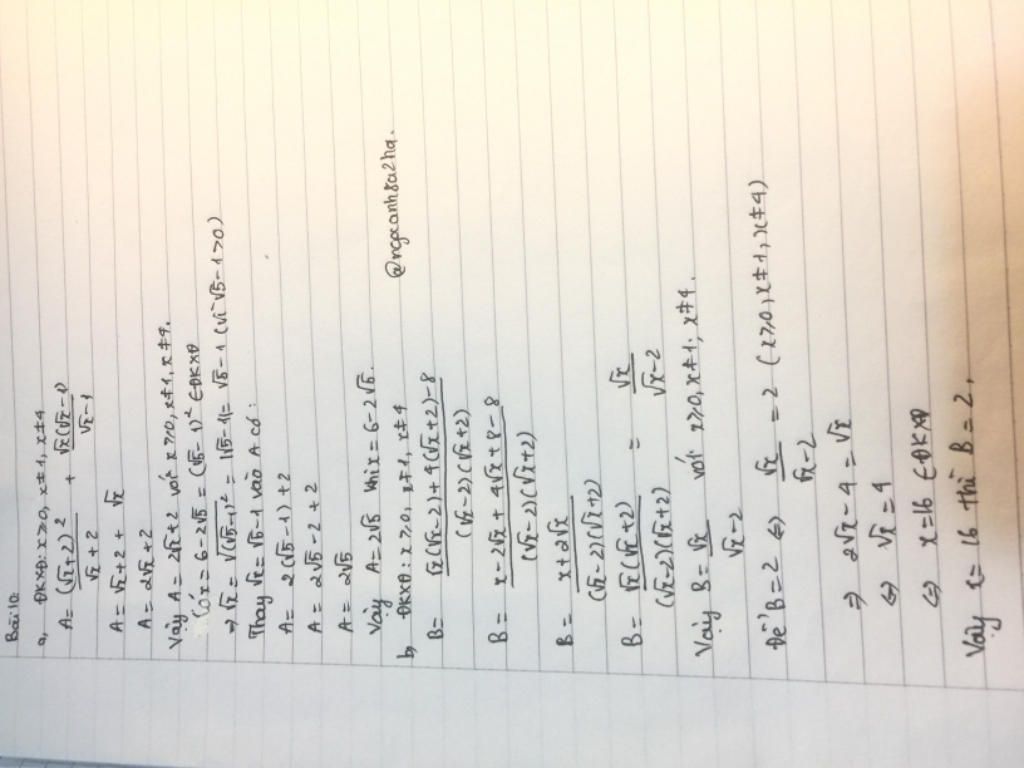 Bài 10
a, ĐKXĐ: x ≥ 0, x ≠ 1, x ≠ 4
A = (√x+2)²/(√x+2) + √x(√x-1)/(√x-1)
A = √x + 2 + √x
A = 2√x + 2
Vậy A = 2√x + 2 với x ≥ 0, x ≠ 1, x ≠ 4.
Có x = 6 - 2√5 = (√5 - 1)² ∈ ĐKXĐ
⇒ √x = √(√5-1)² = |√5-1| = √5 - 1 (vì √5 - 1 > 0)
Thay √x = √5 - 1 vào A có:
A = 2(√5-1) + 2
A = 2√5 - 2 + 2
A = 2√5
Vậy A = 2√5 khi x = 6 - 2√5.
b, ĐKXĐ: x ≥ 0, x ≠ 1, x ≠ 4 @ngocanh8a2hq.
B = (√x(√x-2) + 4(√x+2) - 8)/((√x-2)(√x+2))
B = (x - 2√x + 4√x + 8 - 8)/((√x-2)(√x+2))
B = (x + 2√x)/((√x-2)(√x+2))
B = √x(√x+2)/((√x-2)(√x+2)) = √x/(√x-2)
Vậy B = √x/(√x-2) với x ≥ 0, x ≠ 1, x ≠ 4.
Để B = 2 ⇔ √x/(√x-2) = 2 (x ≥ 0, x ≠ 1, x ≠ 4)
⇒ 2√x - 4 = √x
⇔ √x = 4
⇔ x = 16 ∈ ĐKXĐ
Vậy x = 16 thì B = 2.